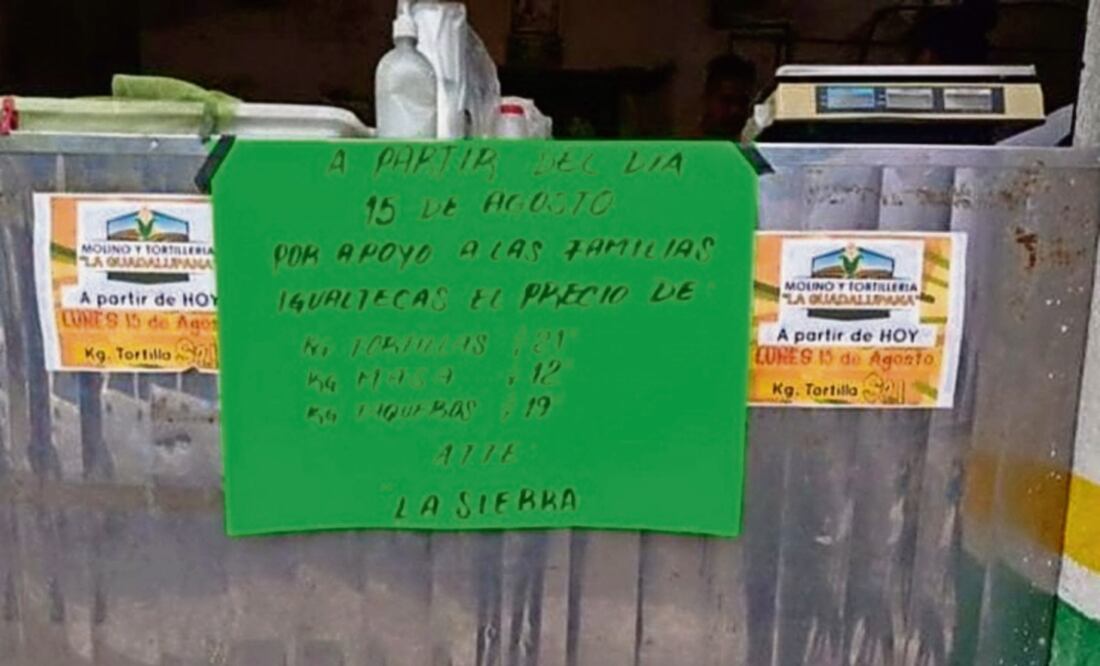 A PARTIR DEL DIA
15 DE AGOSTO
POR APOYO A LAS FAMILIAS
IGUALTECAS EL PRECIO DE:
KG TORTILLAS $21
KG MASA $12
KG TAQUEROS $19
ATTE:
"LA SIERRA
MOLINO Y TORTILLERIA
"LA GUADALUPANA"
A partir de HOY
LUNES 15 de Agos
Kg. Tortilla $21
MOLINO Y TORTILLERIA
"LA GUADALUPANA"
A partir de HOY
LUNES 15 de Agosto
Kg. Tortilla $21